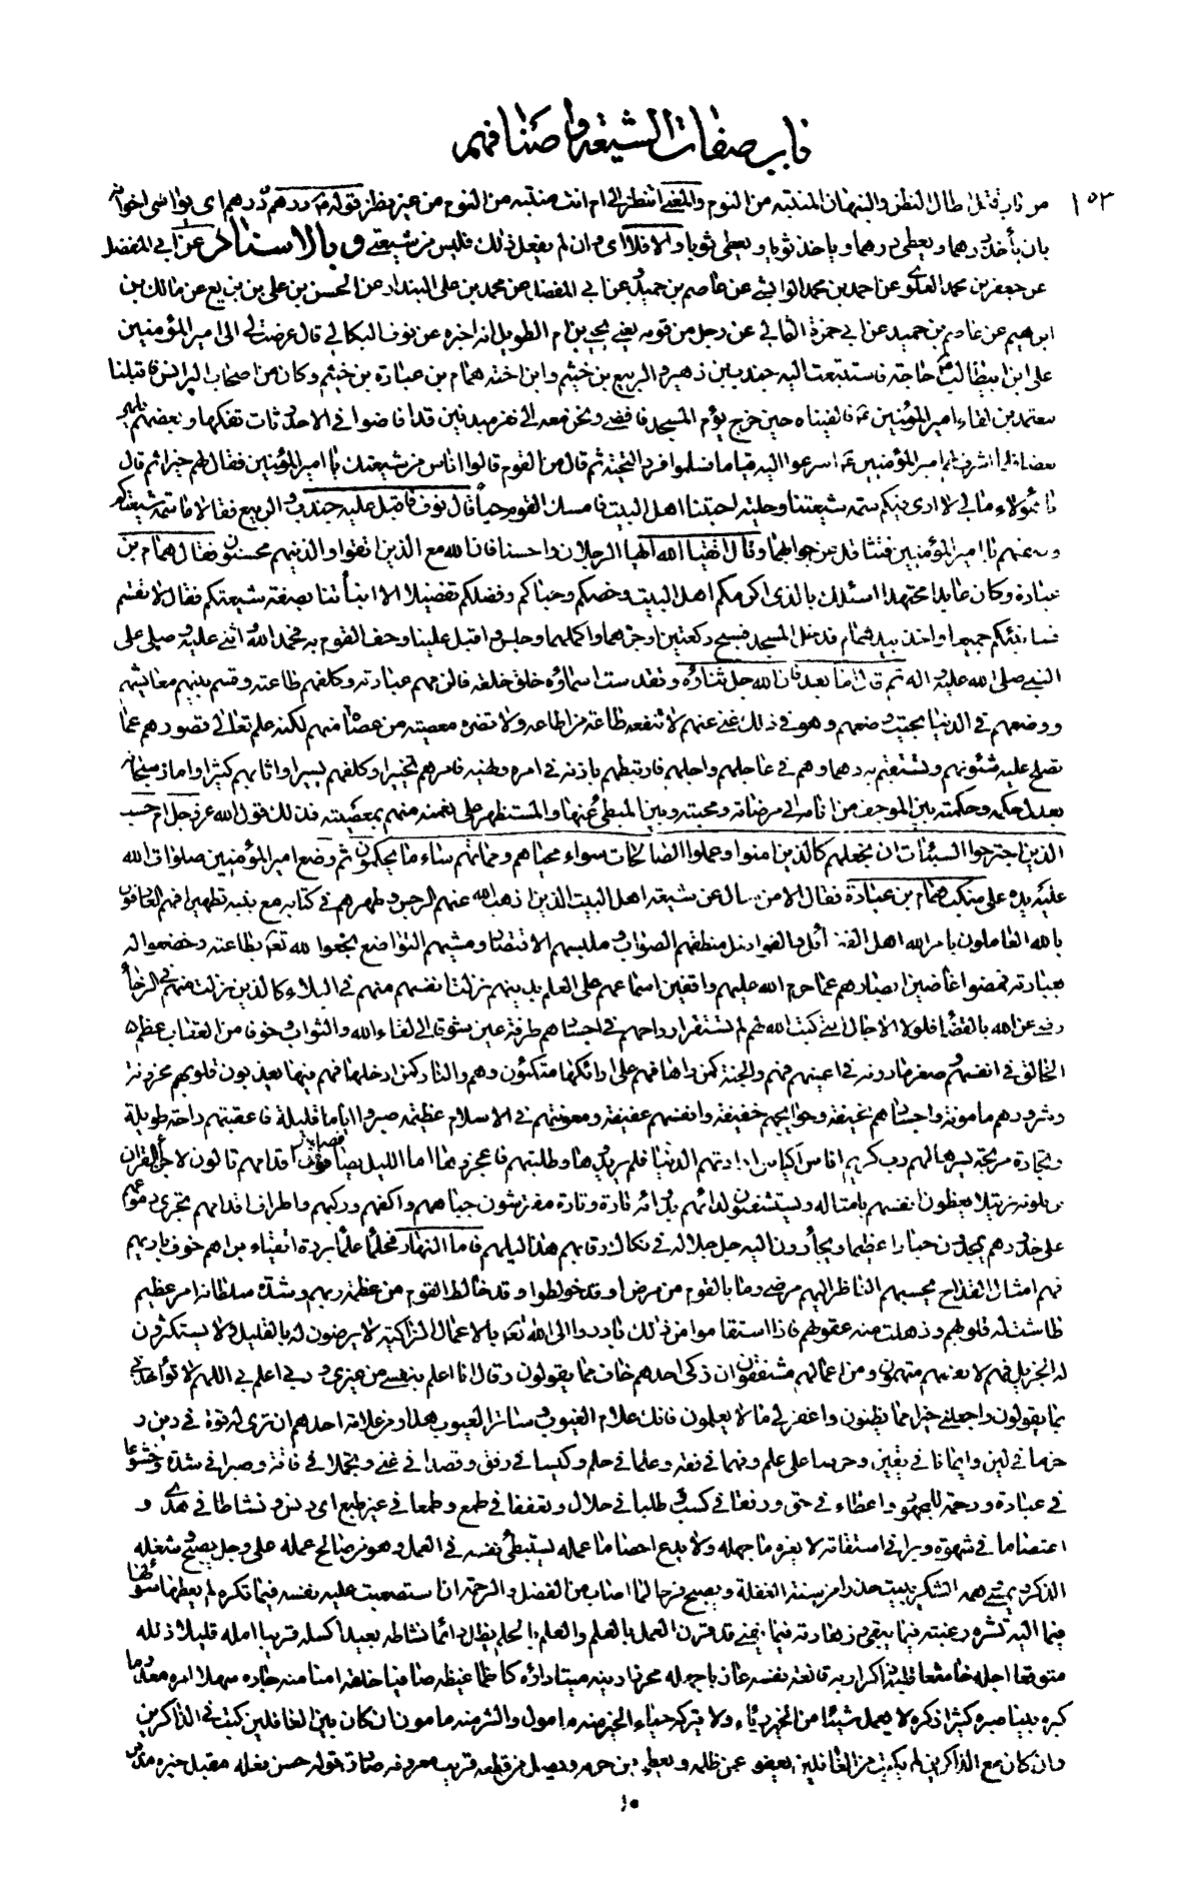 باب صفات الشيعة واصنافهم
١٥٣
من باب قتل اطال النظر والنبهان المنتبه من النوم والمعنى انتظر الى ام انت منتبه من النوم من غير نظر قوله درهم درهم اى يواسى اخوانه
بان يأخذ درهما ويعطى درهما وياخذ ثوبا ويعطى ثوبا والا فلا اى وان لم يفعل ذلك فليس من شيعتى وبالاسناد عن ابى المفضل
عن جعفر بن محمد العلوى عن احمد بن محمد الوابشى عن عاصم بن حميد وعن ابى المفضل عن محمد بن على البندار عن الحسن بن على بن بزيع عن مالك بن
ابرهيم عن عاصم بن حميد عن ابى حمزة الثمالى عن رجل من قومه يعنى يحيى بن ام الطويل انه اخبره عن نوف البكالى قال عرضت لى الى امير المؤمنين
على ابن ابيطالب ع حاجة فاستتبعت اليه جندب بن زهير والربيع بن خيثم وابن اخته همام بن عبادة بن خيثم وكان من اصحاب البرانس فاقبلنا
معتمدين لقاء امير المؤمنين ع فالفيناه حين خرج يؤم المسجد فافضى ونحن معه الى نفر مبدنين قد افاضوا فى الاحدوثات تفكها وبعضهم يلهى
بعضا فلما اشرف لهم امير المؤمنين ع اسرعوا اليه قياما فسلموا فرد التحية ثم قال من القوم قالوا اناس من شيعتك يا امير المؤمنين فقال لهم خيرا ثم قال
يا هؤلاء مالى لا ارى فيكم سمة شيعتنا وحلية احبتنا اهل البيت فامسك القوم حياء قال نوف فاقبل عليه جندب والربيع فقالا ما سمة شيعتكم
وصفتهم يا امير المؤمنين فتثاقل عن جوابهما وقال اتقيا الله ايها الرجلان واحسنا فان الله مع الذين اتقوا والذينهم محسنون فقال همام بن
عبادة وكان عابدا مجتهدا اسئلك بالذى اكرمكم اهل البيت وخصكم وحباكم وفضلكم تفضيلا الا انبأتنا بصفة شيعتكم فقال لا تقسم
فسانبئكم جميعا واخذ بيد همام فدخل المسجد فسبح ركعتين اوجزهما واكملهما وجلس واقبل علينا وحف القوم به فحمد الله واثنى عليه وصلى على
النبى صلى الله عليه واله ثم قال اما بعد فان الله جل ثناؤه وتقدست اسماؤه خلق خلقه فالزمهم عبادته وكلفهم طاعته وقسم بينهم معايشهم
ووضعهم فى الدنيا بحيث وضعهم وهو فى ذلك غنى عنهم لا تنفعه طاعة من اطاعه ولا تضره معصية من عصاه منهم لكنه علم تعالى قصورهم عما
تصلح عليه شئونهم وتستقيم به دهماؤهم فى عاجلهم واجلهم فارتبطهم باذنه فى امره ونهيه فامرهم تخييرا وكلفهم يسيرا واثابهم كثيرا واماز سبحانه
بعدل حكمه وحكمته بين الموجف من انامه الى مرضاته ومحبته وبين المبطئ عنها والمستظهر على نعمته منهم بمعصيته فذلك قول الله عز وجل ام حسب
الذين اجترحوا السيئات ان نجعلهم كالذين امنوا وعملوا الصالحات سواء محياهم ومماتهم ساء ما يحكمون ثم وضع امير المؤمنين صلوات الله
عليه يده على منكب همام بن عبادة فقال الا من سال عن شيعة اهل البيت الذين اذهب الله عنهم الرجس وطهرهم فى كتابه مع نبيه تطهيرا فهم العارفون
بالله العاملون بامر الله اهل الفضائل والفواضل منطقهم الصواب وملبسهم الاقتصاد ومشيهم التواضع بخعوا لله تعالى بطاعته وخضعوا له
بعبادته فمضوا غاضين ابصارهم عما حرم الله عليهم واقفين اسماعهم على العلم بدينهم نزلت انفسهم منهم فى البلاء كالذين نزلت منهم فى الرخاء
رضى عن الله بالقضاء فلولا الاجال التى كتب الله لهم لم تستقر ارواحهم فى اجسادهم طرفة عين شوقا الى لقاء الله والثواب وخوفا من العقاب عظم
الخالق فى انفسهم وصغر ما دونه فى اعينهم فهم والجنة كمن راها فهم على ارائكها متكئون وهم والنار كمن ادخلها فهم فيها يعذبون قلوبهم محزونة
وشرورهم مامونة واجسادهم نحيفة وحوايجهم خفيفة وانفسهم عفيفة ومعونتهم فى الاسلام عظيمة صبروا اياما قليلة فاعقبتهم راحة طويلة
وتجارة مربحة يسرها لهم رب كريم اناس اكياس ارادتهم الدنيا فلم يريدوها وطلبتهم فاعجزوها اما الليل فصافون اقدامهم تالون لاجزاء القران
يرتلونه ترتيلا يعظون انفسهم بامثاله ويستشفون لدائهم بدوائه تارة وتارة مفترشون جباههم واكفهم وركبهم واطراف اقدامهم تجرى دموعهم
على خدودهم يمجدون جبارا عظيما ويجأرون اليه جل جلاله فى فكاك رقابهم هذا ليلهم فاما النهار فحلماء علماء بررة اتقياء براهم خوف باريهم
فهم امثال القداح يحسبهم الناظر اليهم مرضى وما بالقوم من مرض او قد خولطوا وقد خالط القوم من عظمة ربهم وشدة سلطانه امر عظيم
طاشت له قلوبهم وذهلت منه عقولهم فاذا استقاموا من ذلك بادروا الى الله تعالى بالاعمال الزاكية لا يرضون له بالقليل ولا يستكثرون
له الجزيل فهم لانفسهم متهمون ومن اعمالهم مشفقون ان زكى احدهم خاف مما يقولون وقال انا اعلم بنفسى من غيرى وربى اعلم بى اللهم لا تؤاخذنى
بما يقولون واجعلنى خيرا مما يظنون واغفر لى ما لا يعلمون فانك علام الغيوب وساتر العيوب هذا ومن علامة احدهم ان ترى له قوة فى دين و
حزما فى لين وايمانا فى يقين وحرصا على علم وفهما فى فقه وعلما فى حلم وكيسا فى رفق وقصدا فى غنى وتجملا فى فاقة وصبرا فى شدة وخشوعا
فى عبادة ورحمة للمجهود واعطاء فى حق ورفقا فى كسب وطلبا فى حلال وتعففا فى طمع وطمعا فى غير طبع اى دنس ونشاطا فى هدى و
اعتصاما فى شهوة وبرا فى استقامة لا يغره ما جهله ولا يدع احصاء ما عمله يستبطئ نفسه فى العمل وهو من صالح عمله على وجل يصبح وشغله
الذكر ويمسى وهمه الشكر يبيت حذرا من سنة الغفلة ويصبح فرحا لما اصاب من الفضل والرحمة ان استصعبت عليه نفسه فيما تكره لم يعطها سؤلها
فيما اليه تشره رغبته فيما يبقى وزهادته فيما يفنى قد قرن العمل بالعلم والعلم بالحلم يظل دائما نشاطه بعيدا كسله قريبا امله قليلا زلله
متوقعا اجله خاشعا قلبه ذاكرا ربه قانعة نفسه عازبا جهله محرزا دينه ميتا داؤه كاظما غيظه صافيا خلقه امنا منه جاره سهلا امره معدوما
كبره بينا صبره كثيرا ذكره لا يعمل شيئا من الخير رياء ولا يتركه حياء الخير منه مامول والشر منه مامون ان كان بين الغافلين كتب فى الذاكرين
وان كان مع الذاكرين لم يكتب من الغافلين يعفو عمن ظلمه ويعطى من حرمه ويصل من قطعه قريب معروفه صادق قوله حسن فعله مقبل خيره مدبر